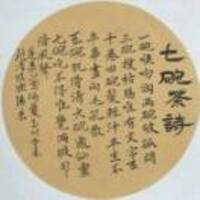 七碗茶詩
一碗喉吻潤兩碗破孤悶
三碗搜枯腸唯有文字五
千卷四碗發輕汗平生不
平事盡向毛孔散
五碗肌骨清六碗通仙靈
七碗吃不得唯覺兩腋習
清風